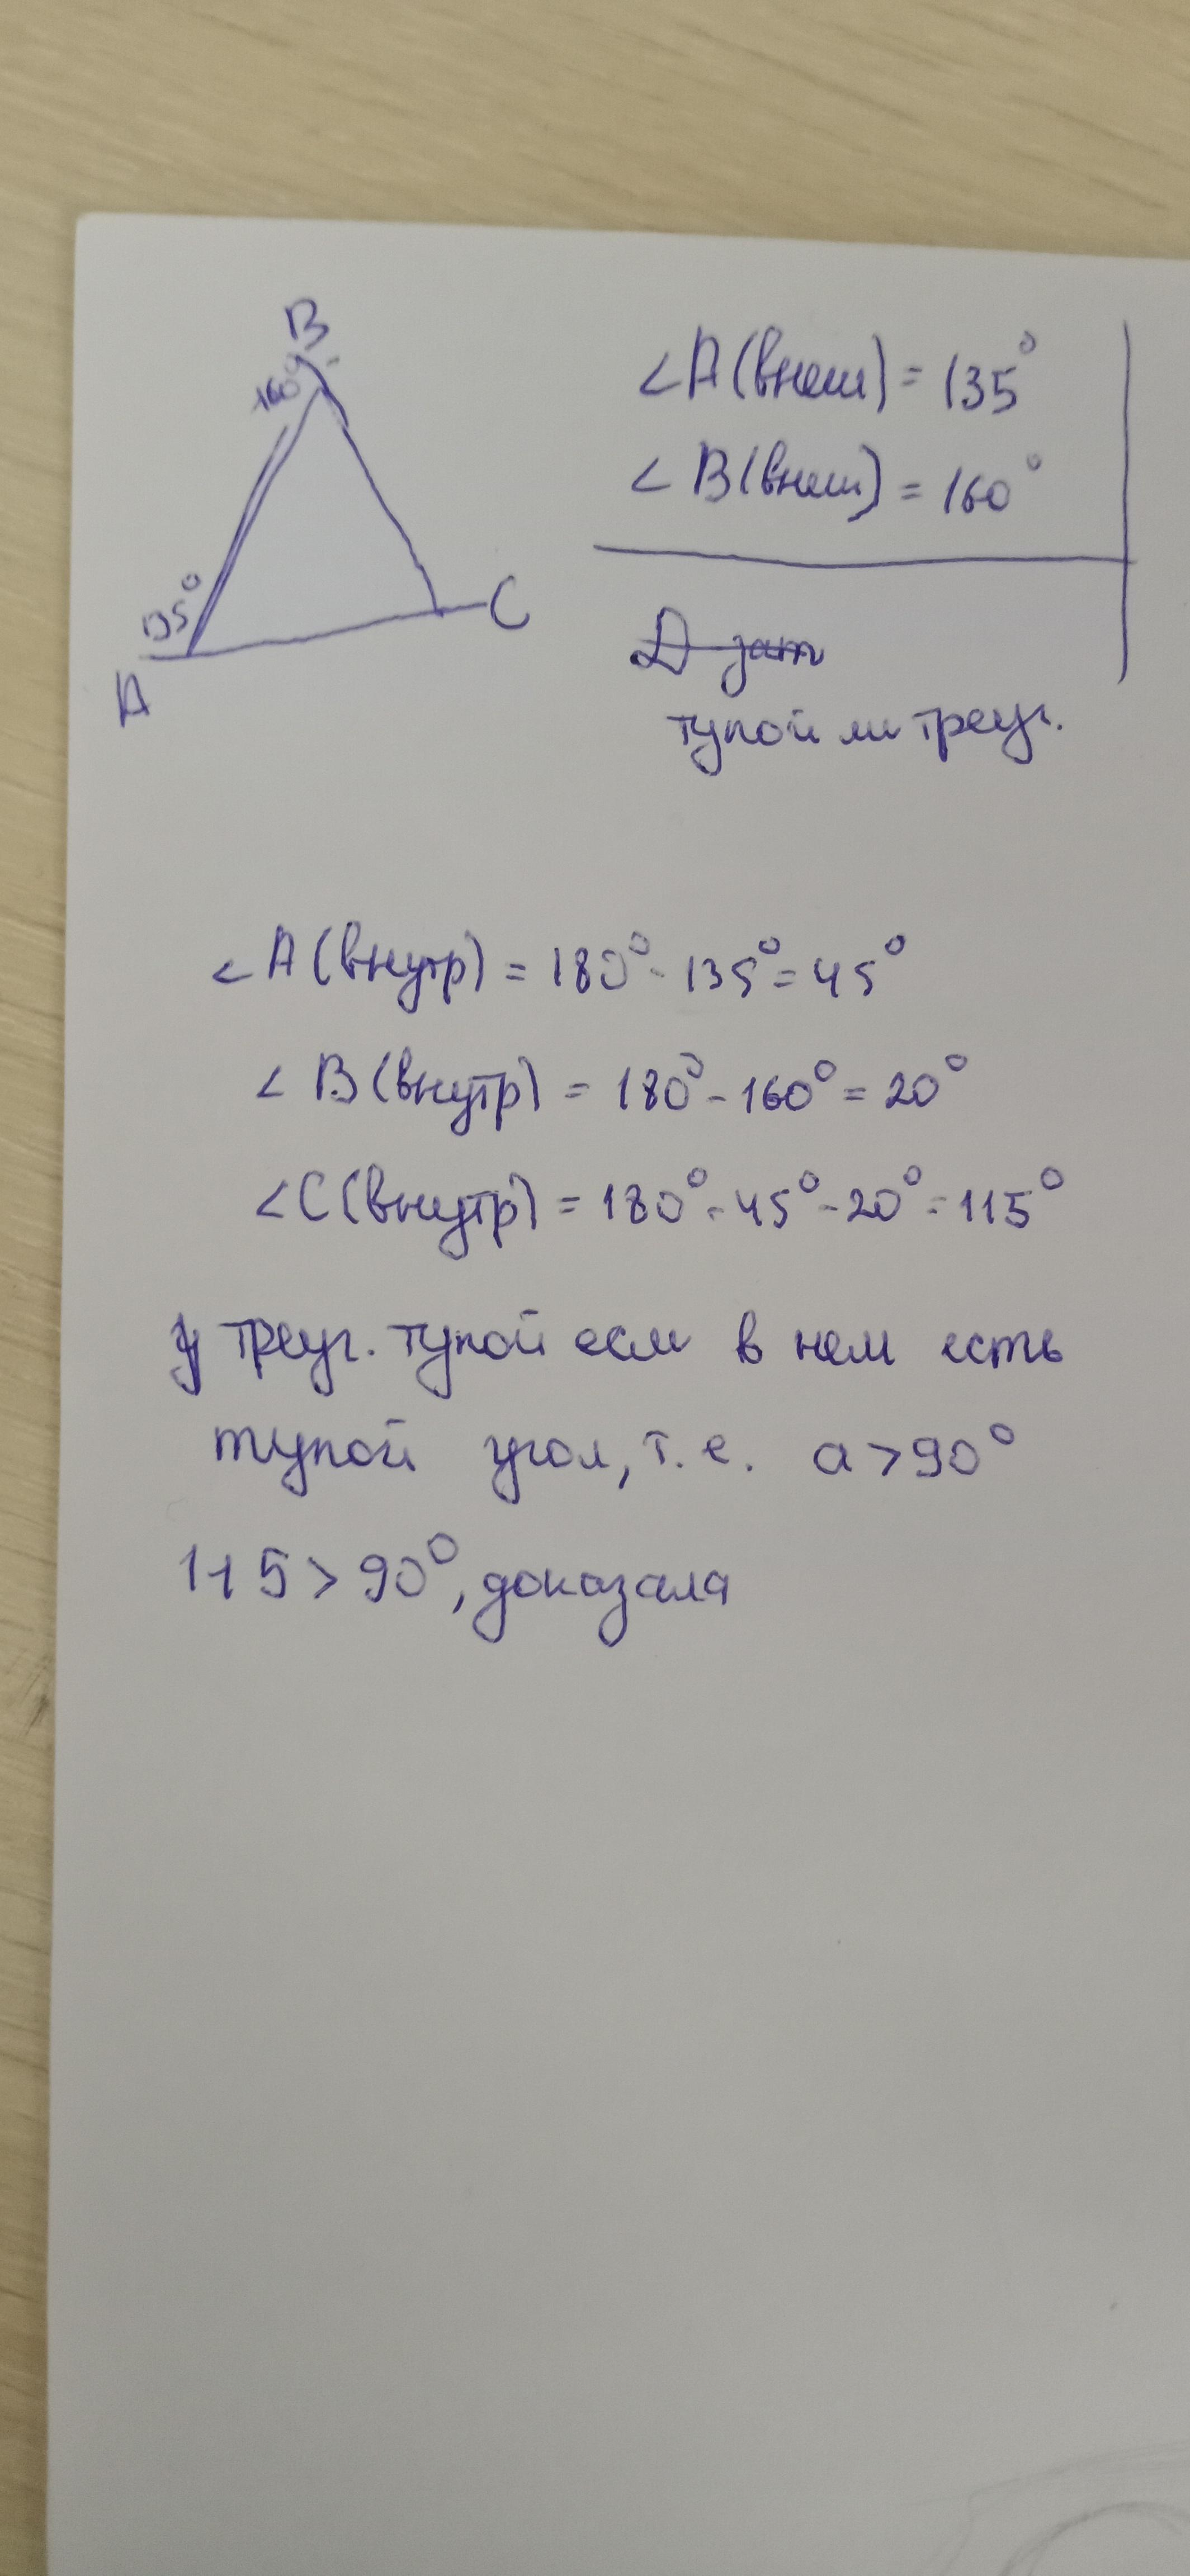 B
160°
135°
A
C
∠A(внеш) = 135°
∠B(внеш) = 160°
тупой ли треуг.
∠A(внутр) = 180° - 135° = 45°
∠B(внутр) = 180° - 160° = 20°
∠C(внутр) = 180° - 45° - 20° = 115°
у треуг. тупой если в нем есть
тупой угол, т.е. a > 90°
115 > 90°, доказала